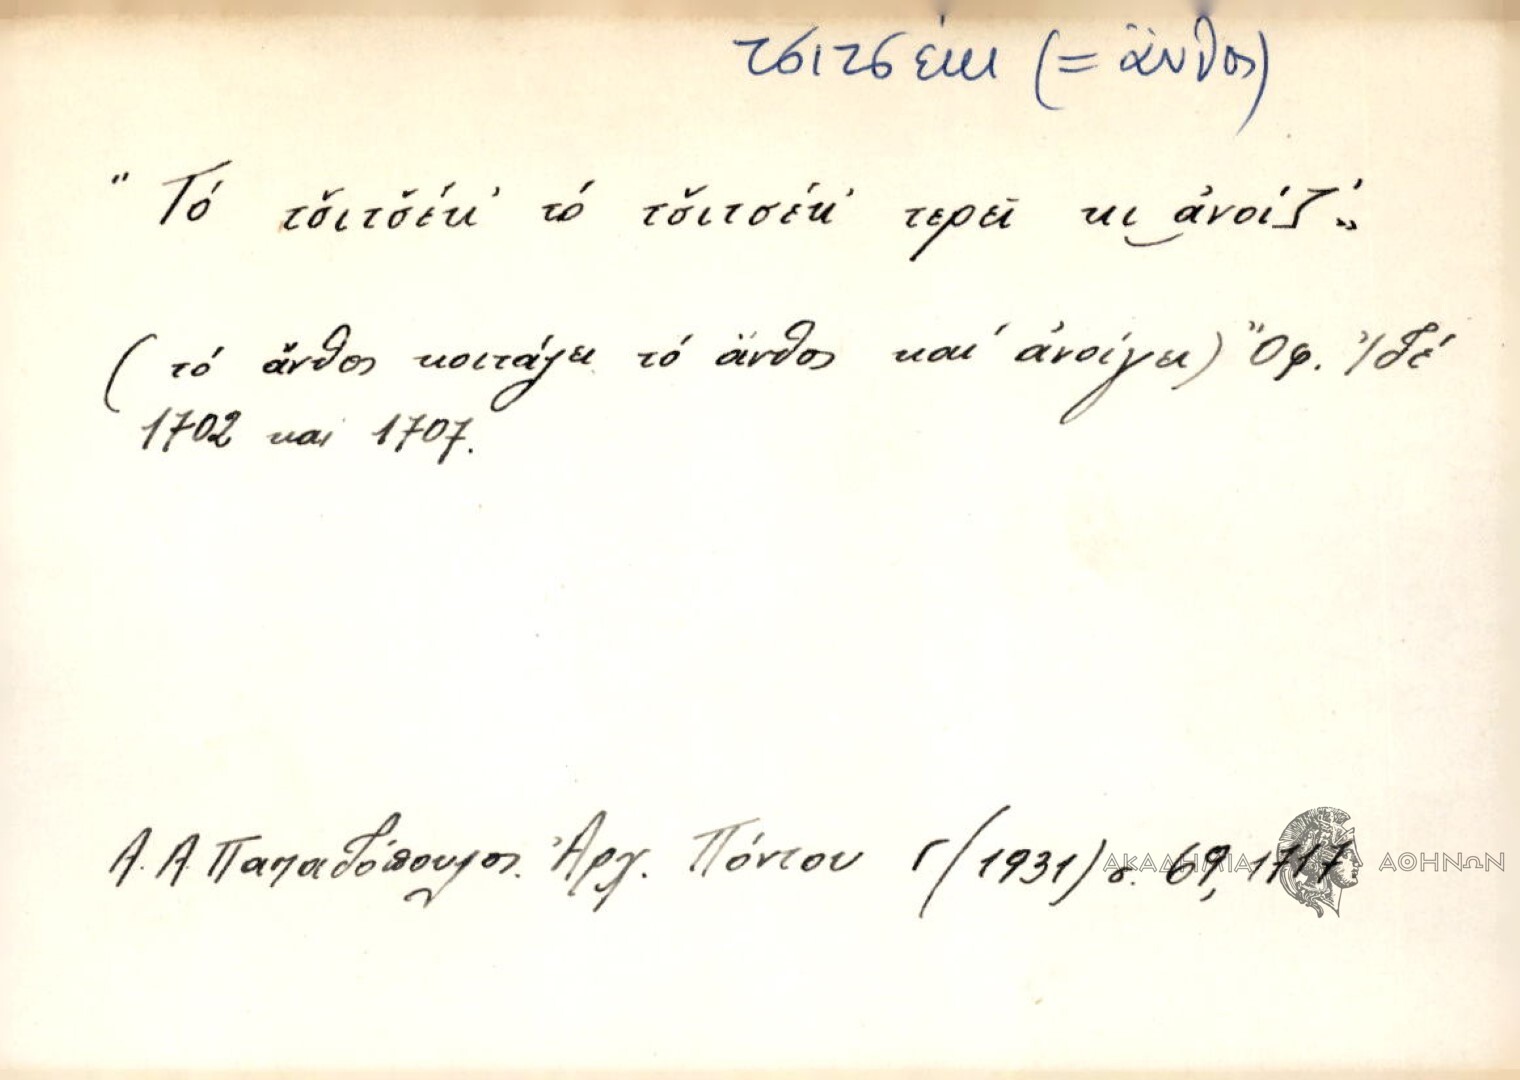 τσιτσέκι (= ἄνθος)
"Τό τσ̌ιτσ̌έκ' τό τσ̌ιτσέκ' τερεῖ κι ἀνοίζ'"
(τό ἄνθος κοιτάζει τό ἄνθος καί ἀνοίγει) Ὄφ. Ἰδέ
1702 και 1707.
Α. Α. Παπαδόπουλος. Ἀρχ. Πόντου Γ (1931) σ. 69, 1717
ΑΚΑΔΗΜΙΑ ΑΘΗΝΩΝ